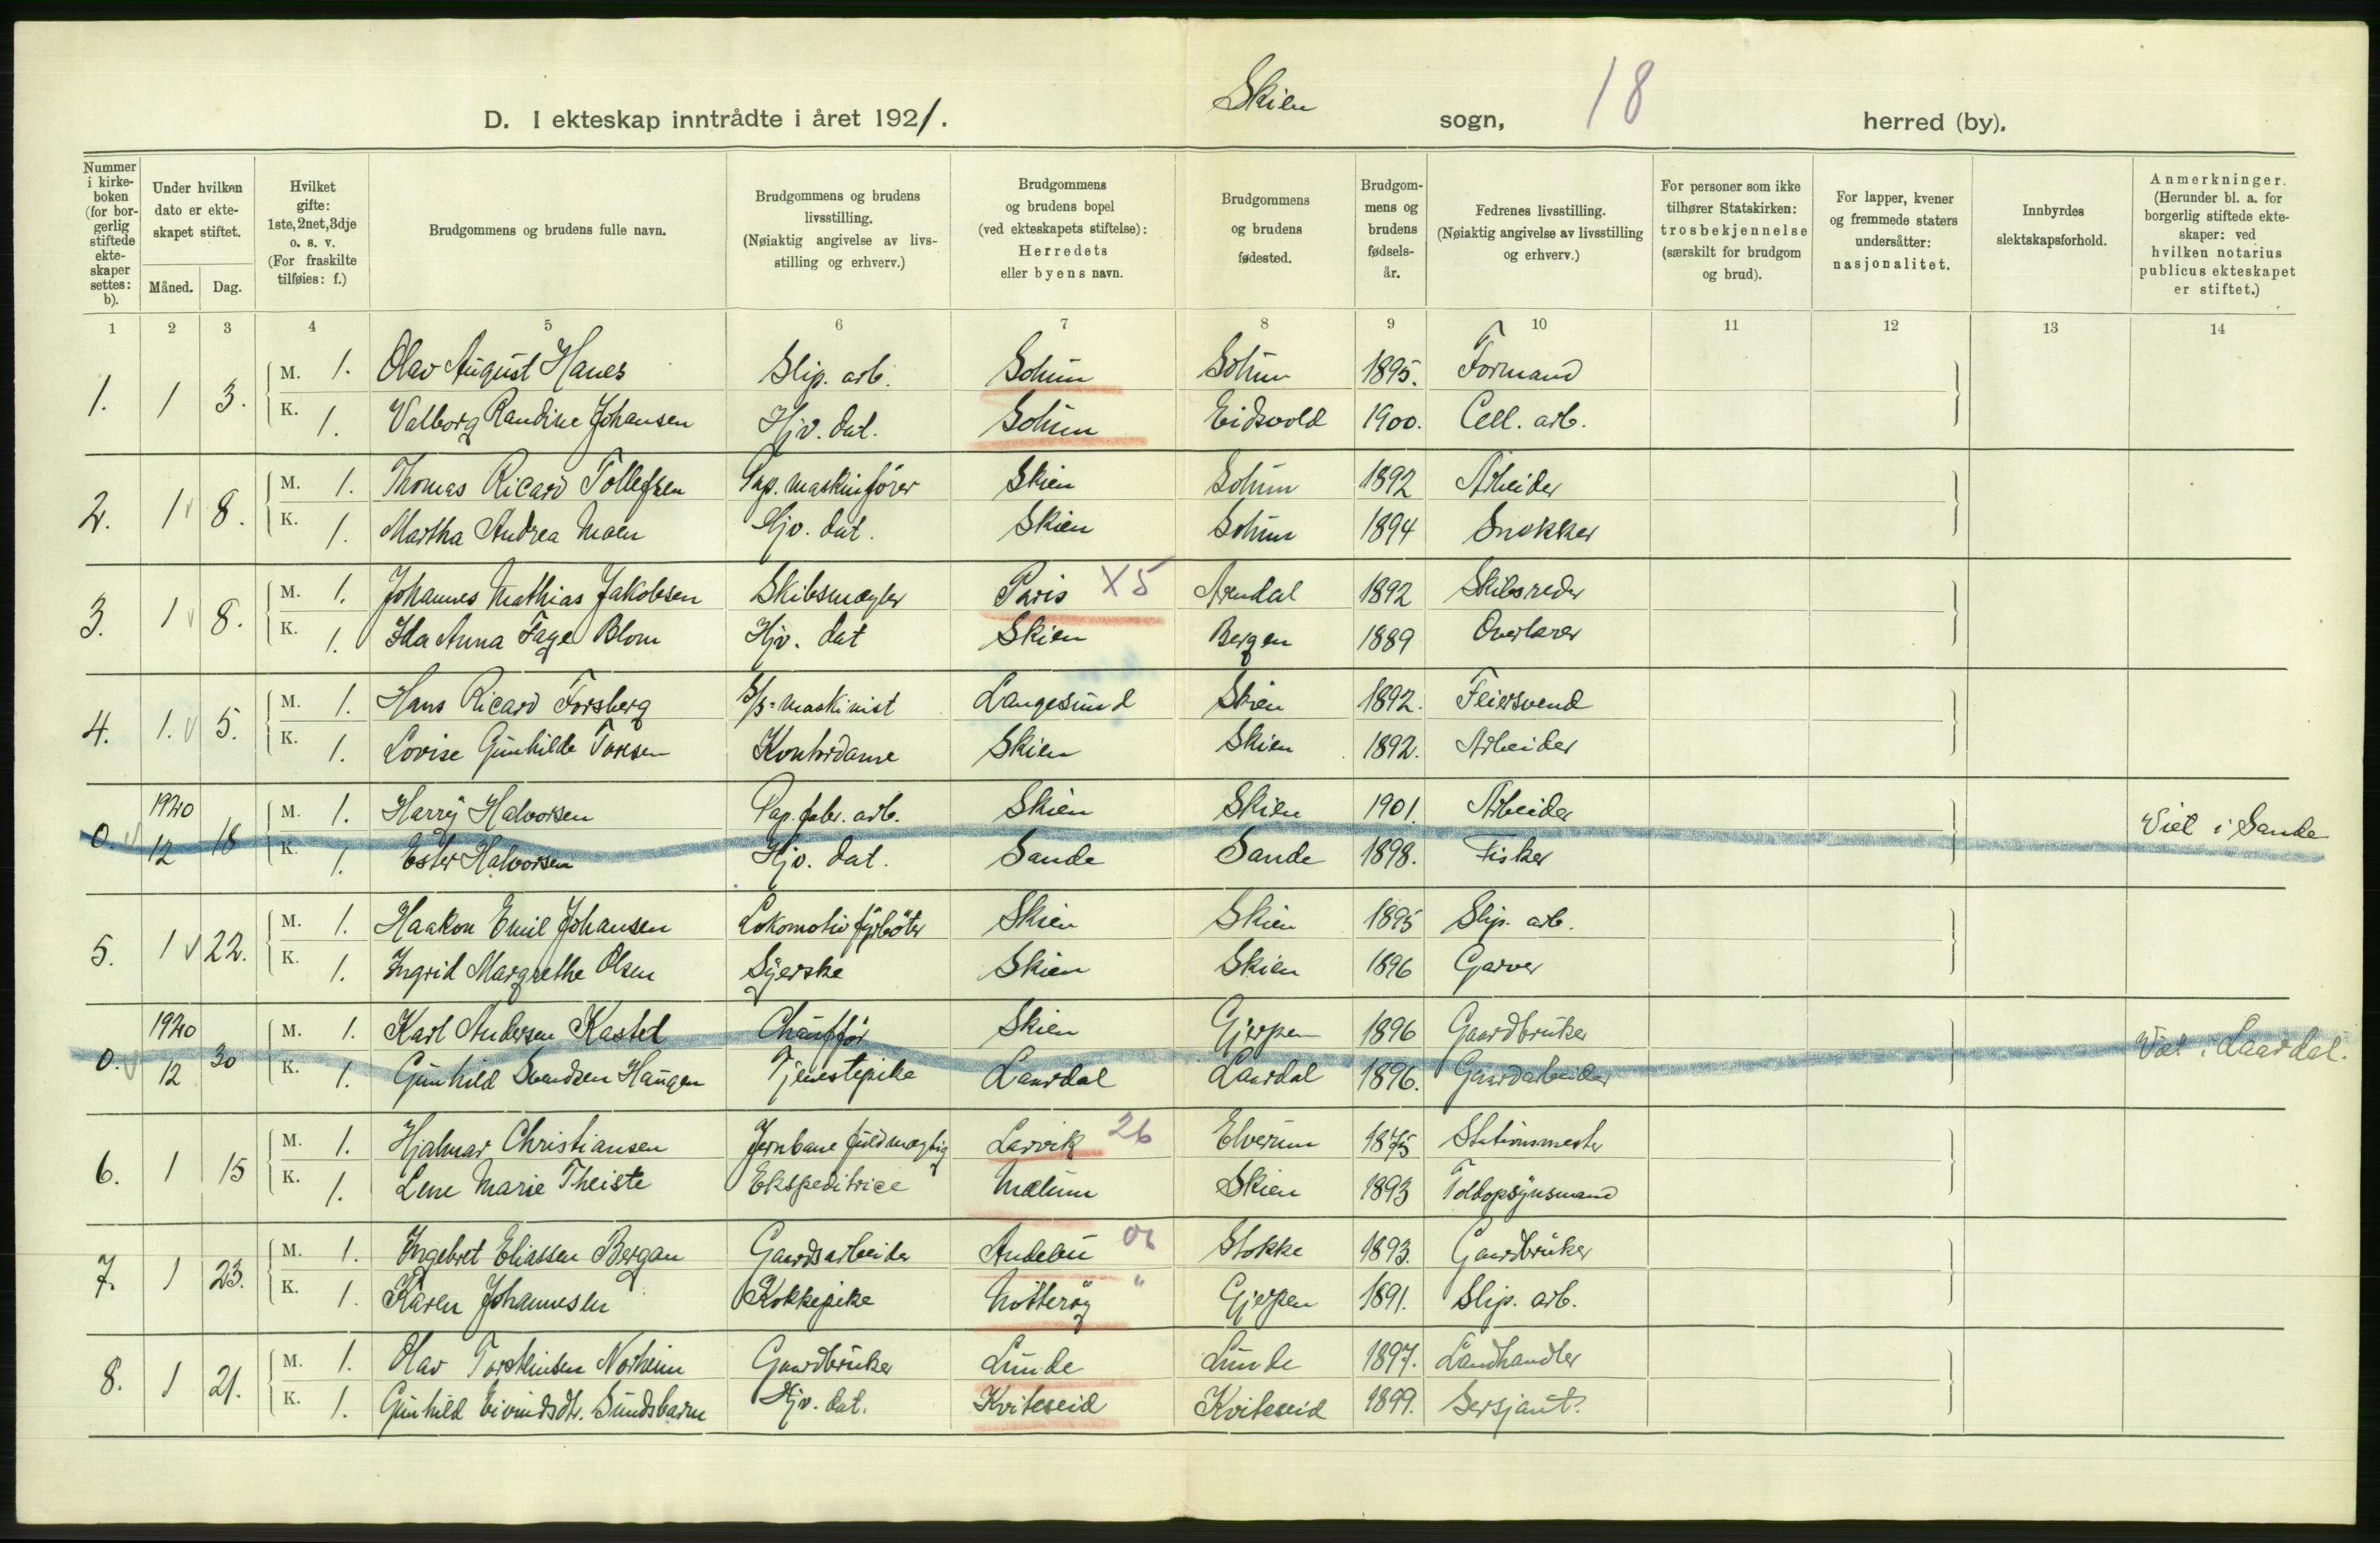 Skien 18
D. I ekteskap inntrådte i året 1921. sogn, herred (by).
Nummer i kirkeboken (for borgerlig stiftede ekteskaper settes: b).
Under hvilken dato er ekteskapet stiftet.
Måned. Dag.
Hvilket gifte: 1ste, 2net, 3dje o. s. v. (For fraskilte tilføies: f.)
Brudgommens og brudens fulle navn.
Brudgommens og brudens livsstilling. (Nøiaktig angivelse av livsstilling og erhverv.)
Brudgommens og brudens bopel (ved ekteskapets stiftelse): Herredets eller byens navn.
Brudgommens og brudens fødested.
Brudgommens og brudens fødselsår.
Fedrenes livsstilling. (Nøiaktig angivelse av livsstilling og erhverv.)
For personer som ikke tilhører Statskirken: trosbekjennelse (særskilt for brudgom og brud).
For lapper, kvener og fremmede staters undersåtter: nasjonalitet.
Innbyrdes slektskapsforhold.
Anmerkninger. (Herunder bl. a. for borgerlig stiftede ekteskaper: ved hvilken notarius publicus ekteskapet er stiftet.)
1 2 3 4 5 6 7 8 9 10 11 12 13 14
1. 1 3. M. 1. Olav August Hanes Slip. arb. Solum Solum 1895. Formand
K. 1. Valborg Randine Johansen Hjv. dat. Solum Eidsvold 1900. Cell. arb.
2. 1 8. M. 1. Thomas Ricard Tollefsen Pap. maskinfører Skien Solum 1892 Arbeider
K. 1. Martha Andrea Moen Hjv. dat. Skien Solum 1894 Snekker
3. 1 8. M. 1. Johannes Mathias Jakobsen Skibsmægler Paris X5 Arendal 1892 Skibsreder
K. 1. Ida Anna Fage Blom Hjv. dat Skien Bergen 1889 Overlærer
4. 1. 5. M. 1. Hans Ricard Forsberg maskinist Langesund Skien 1892. Feiersvend
K. 1. Lovise Gunhilde Skien Skien 1892. Arbeider
Kontordame
0. 1920 12 18 M. 1. Harry Halvorsen Pap. fabr. arb. Skien Skien 1901. Arbeider Viet i Sande
K. 1. Ester Halvorsen Hjv. dat. Sande Sande 1898. Fisker
5. 1 22. M. 1. Haakon Emil Johansen Lokomotivfyrbøter Skien Skien 1895 Slip. arb.
K. 1. Ingrid Margrethe Olsen Syerske Skien Skien 1896 Garver
0. 1920 12 30 M. 1. Karl Andersen Kastet Chauffør Skien Gjerpen 1896 Gaardbruker Viet i Laardal.
K. 1. Gunhild Svendsen Haugen Tjenestepike Laardal Laardal 1896. Gaardarbeider
6. 1 15 M. 1. Hjalmar Christiansen Jernbane fuldmægtig Larvik 26 Elverum 1875 Stationsmester
K. 1. Lene Marie Theiste Ekspeditrice Mælum Skien 1893 Toldopsynsmand
7. 1 23. M. 1. Ingebret Eliassen Bergan Gaardsarbeider Andebu Stokke 1893. Gaardbruker
K. 1. Karen Johannesen Kokkepike Nøtterøy " Gjerpen 1891. Slip. arb.
8. 1 21. M. 1. Olav Torsteinsen Norheim Gaardbruker Lunde Lunde 1897. Landhandler
K. 1. Gunhild Eivindsdtr. Sundsbarm Hjv. dat. Kviteseid Kviteseid 1899. Sersjant.